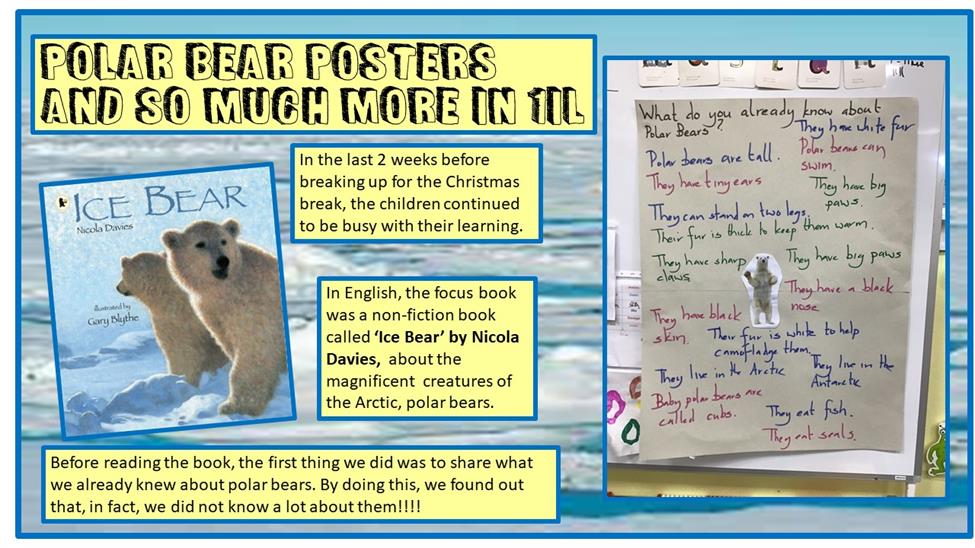 POLAR BEAR POSTERS
AND SO MUCH MORE IN 1IL
ICE BEAR
Nicola Davies
illustrated by
Gary Blythe
In the last 2 weeks before
breaking up for the Christmas
break, the children continued
to be busy with their learning.
In English, the focus book
was a non-fiction book
called ‘Ice Bear’ by Nicola
Davies, about the
magnificent creatures of
the Arctic, polar bears.
Before reading the book, the first thing we did was to share what
we already knew about polar bears. By doing this, we found out
that, in fact, we did not know a lot about them!!!!
What do you already know about
Polar Bears?
They have white fur
Polar bears are tall.
Polar bears can
swim.
They have tiny ears
They have big
paws.
They can stand on two legs.
Their fur is thick to keep them warm.
They have sharp
claws
They have big paws
They have a black
nose
They have black
skin.
Their fur is white to help
camofladge them.
They live in the Arctic
They live in the
Antarctic
Baby polar bears are
called cubs.
They eat fish.
They eat seals.